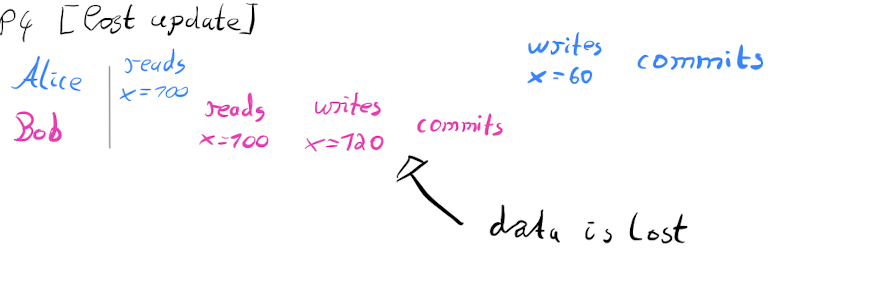 P4 [Lost update]
Alice reads x=100 writes x=60 commits
Bob reads x=100 writes x=120 commits
data is lost